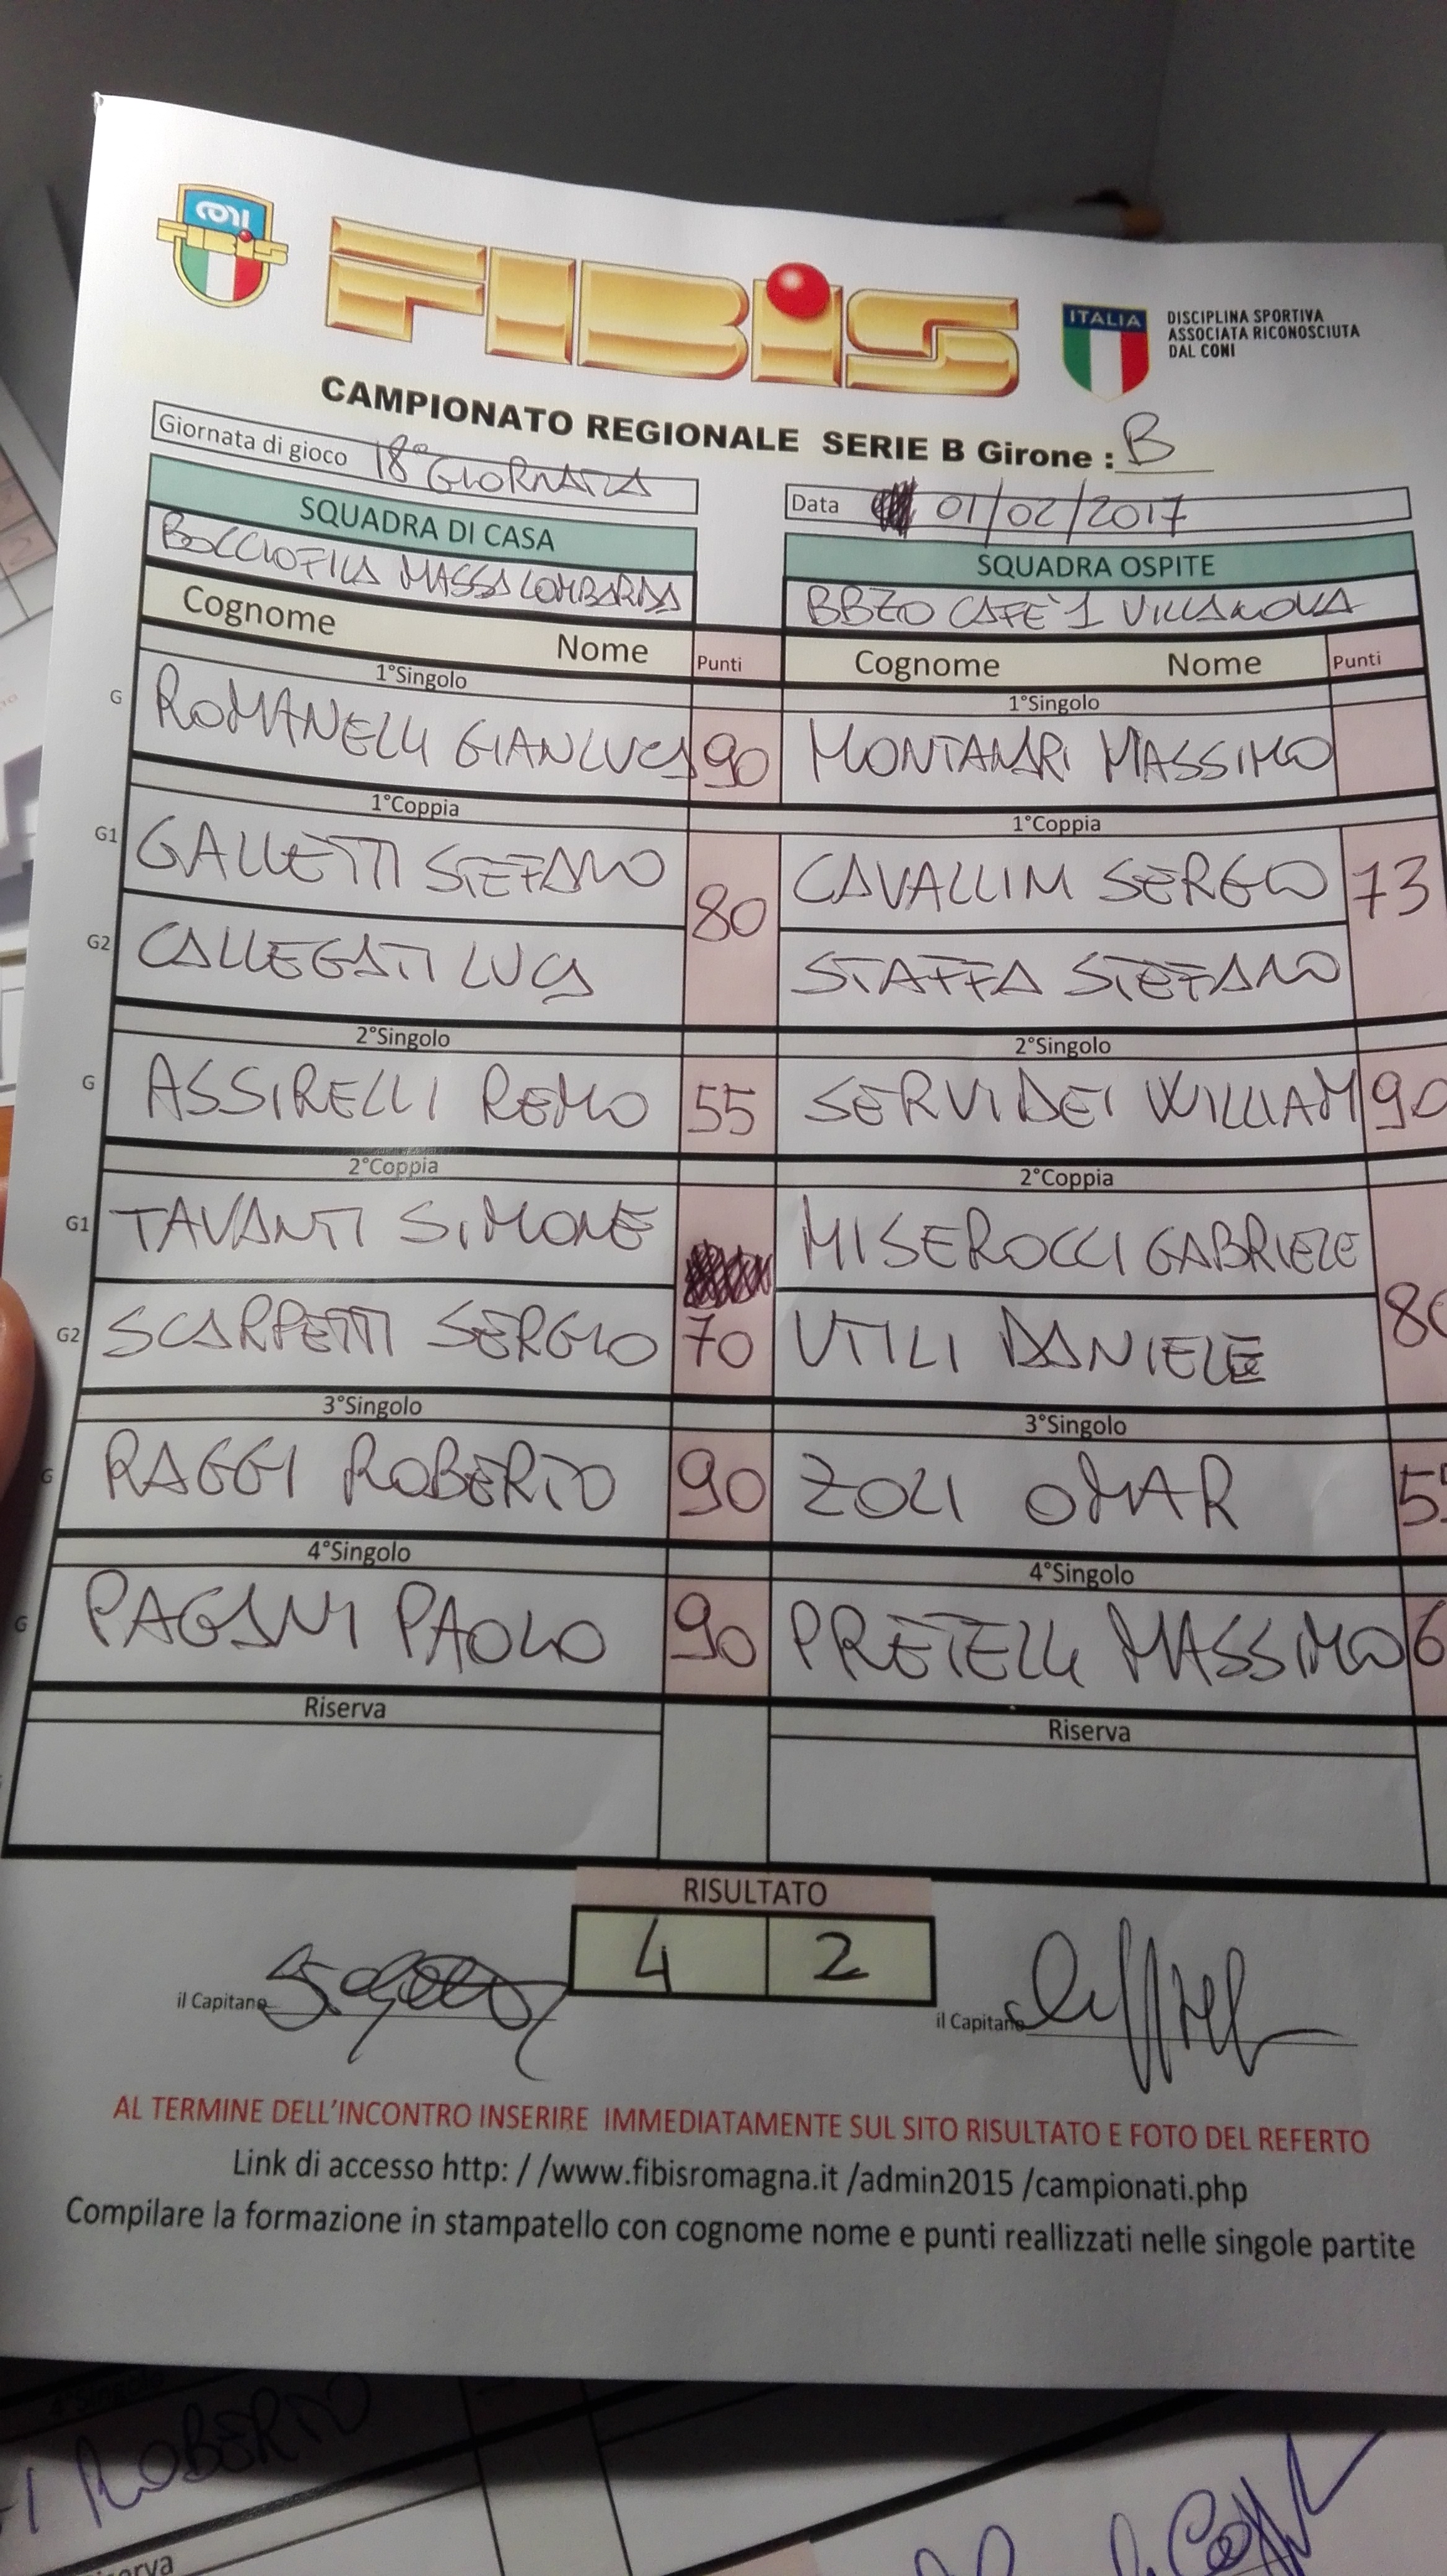 CONI
FIBIS
FIBIS
ITALIA
DISCIPLINA SPORTIVA
ASSOCIATA RICONOSCIUTA
DAL CONI
CAMPIONATO REGIONALE SERIE B Girone : B
Giornata di gioco 18° GIORNATA
Data 01/02/2017
SQUADRA DI CASA
SQUADRA OSPITE
BOCCIOFILA MASSA LOMBARDA
BBZO CAFE' 1 VILLANOVA
Cognome Nome Punti
Cognome Nome Punti
1°Singolo 1°Singolo
G ROMANELLI GIANLUCA 90 MONTANARI MASSIMO
1°Coppia 1°Coppia
G1 GALLETTI STEFANO 80 CAVALLINI SERGIO 73
G2 CALLEGATI LUCA STAFFA STEFANO
2°Singolo 2°Singolo
G ASSIRELLI REMO 55 SERVIDEI WILLIAM 90
2°Coppia 2°Coppia
G1 TAVANTI SIMONE MISEROCCI GABRIELE
G2 SCARPETTI SERGIO 70 UTILI DANIELE 80
3°Singolo 3°Singolo
G RAGGI ROBERTO 90 ZOLI OMAR
4°Singolo 4°Singolo
G PAGANI PAOLO 90 PRETELLI MASSIMO
Riserva Riserva
RISULTATO
4 2
il Capitano
il Capitano
AL TERMINE DELL'INCONTRO INSERIRE IMMEDIATAMENTE SUL SITO RISULTATO E FOTO DEL REFERTO
Link di accesso http: / /www.fibisromagna.it /admin2015 /campionati.php
Compilare la formazione in stampatello con cognome nome e punti reallizzati nelle singole partite
4°Singolo
ROBERTO